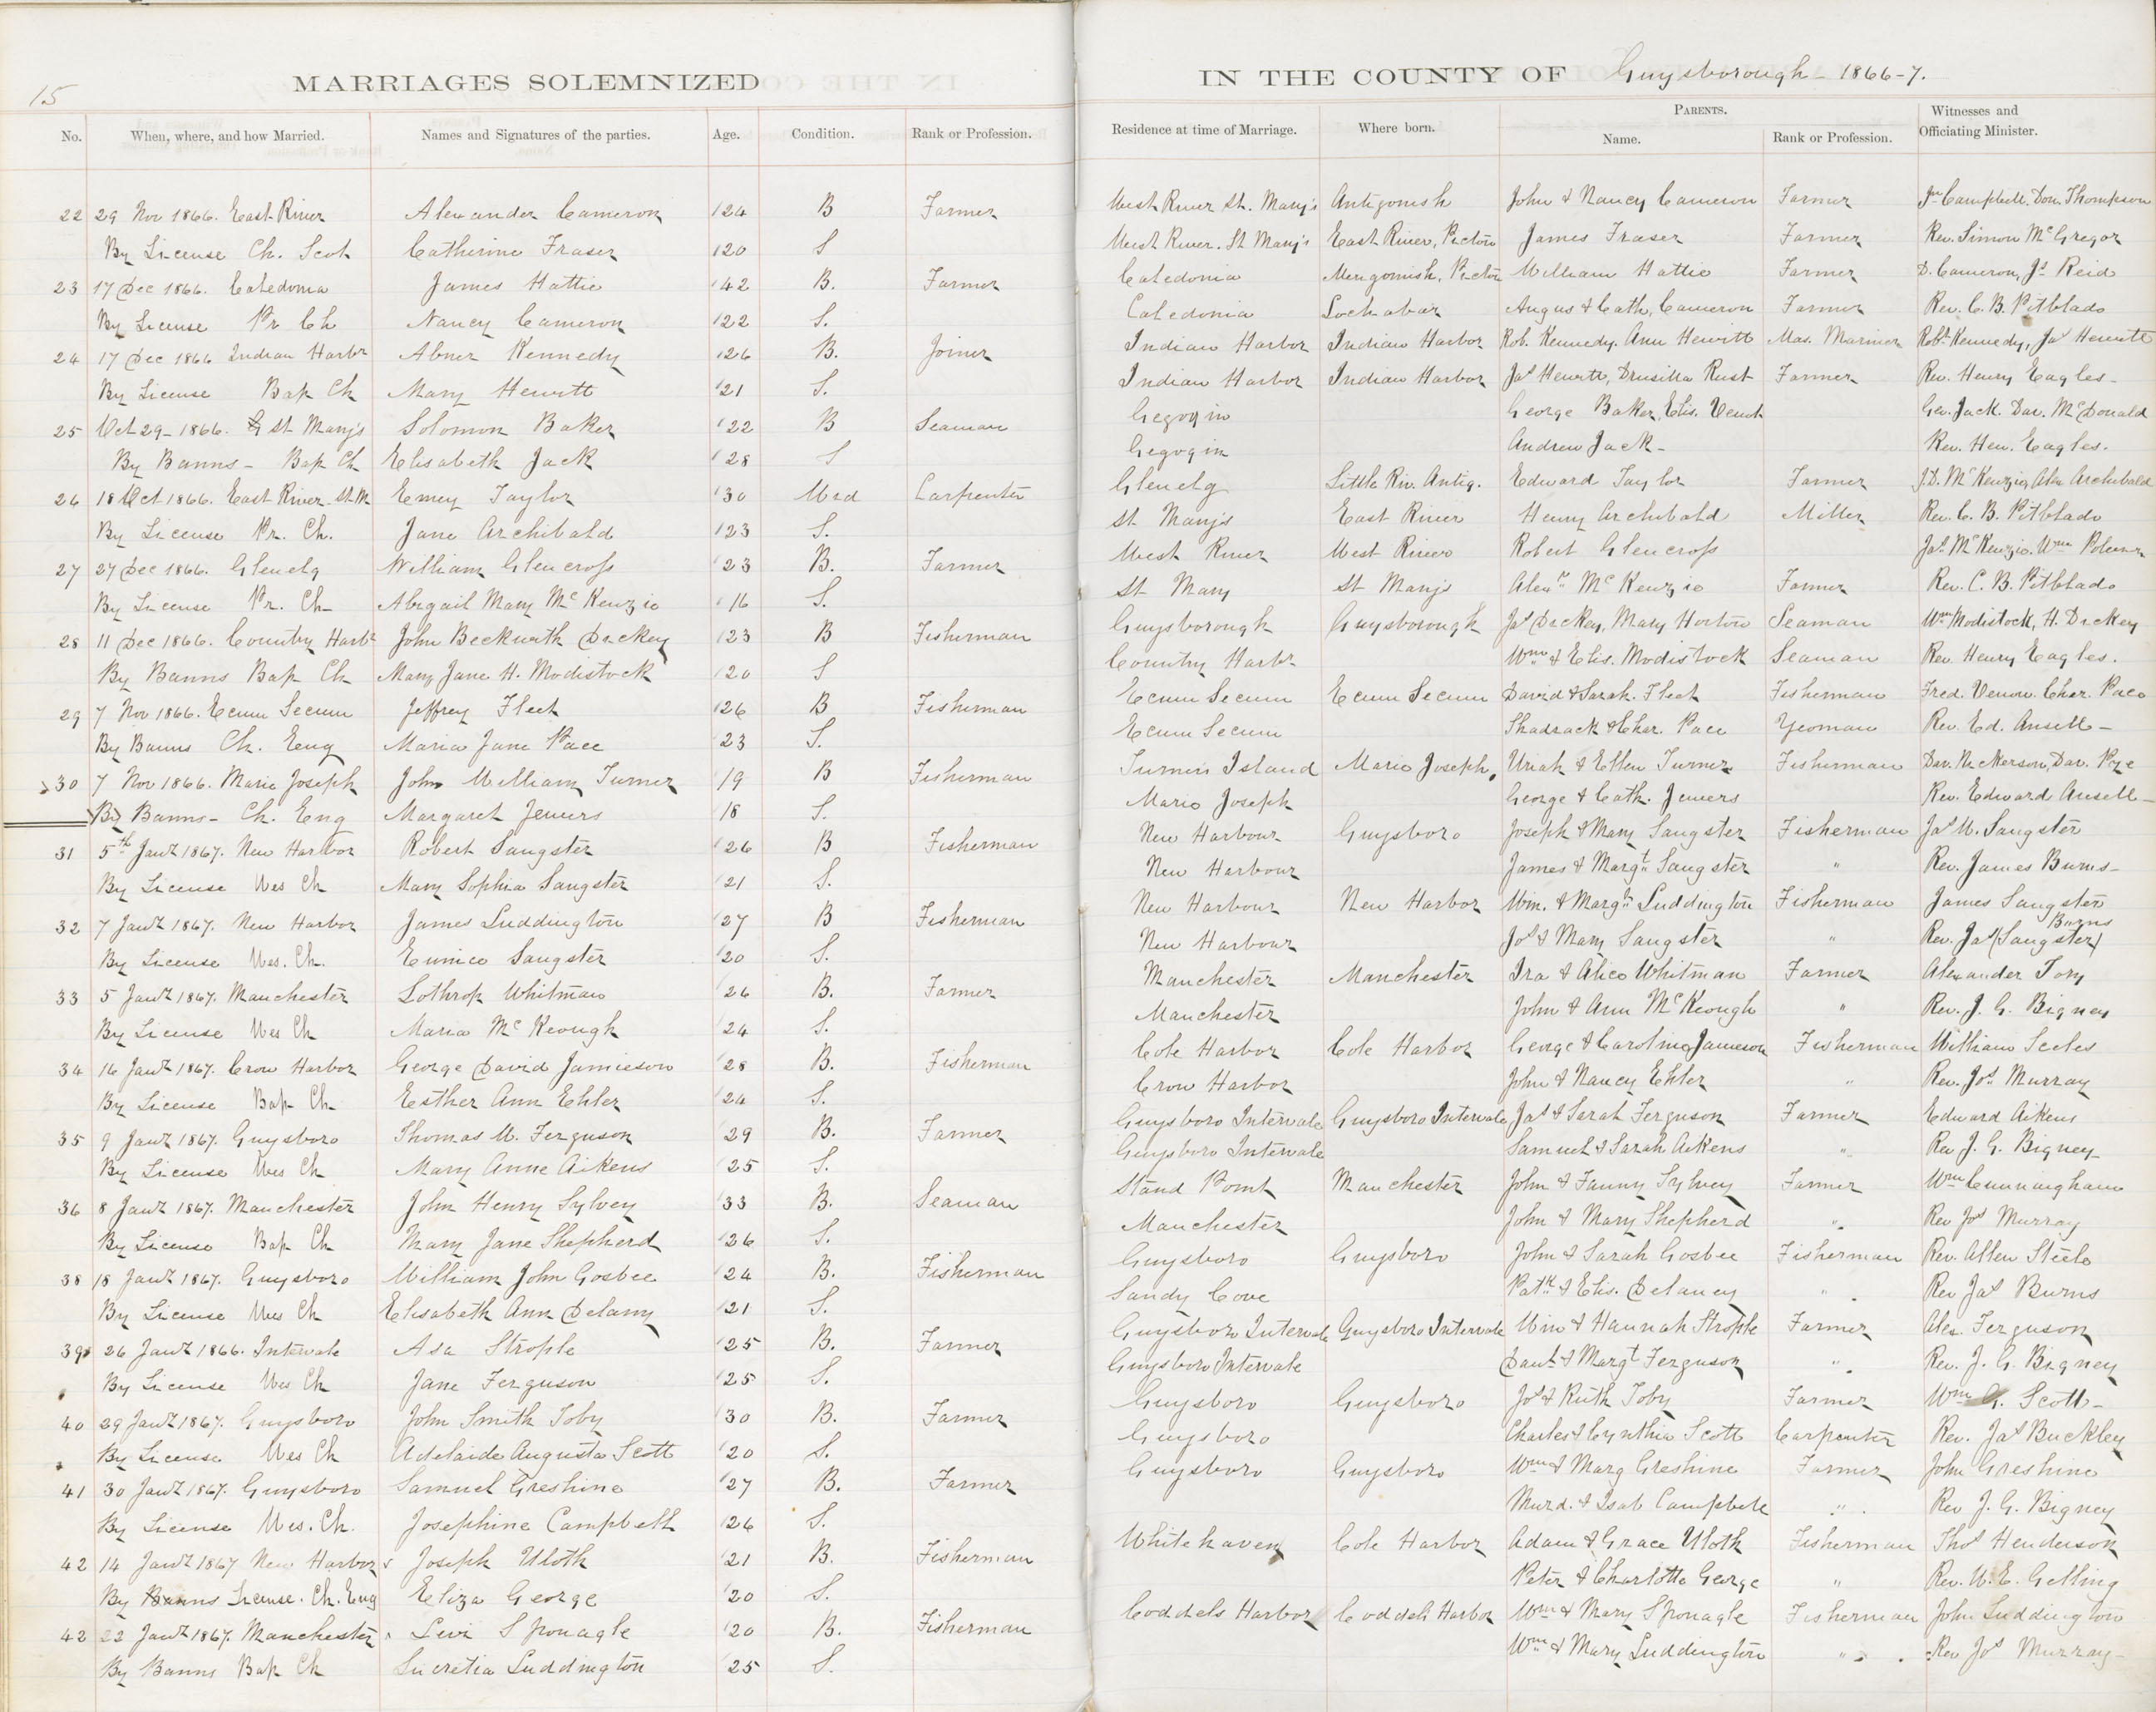 15
MARRIAGES SOLEMNIZED IN THE COUNTY OF Guysborough - 1866-7.
No. When, where, and how Married. Names and Signatures of the parties. Age. Condition. Rank or Profession. Residence at time of Marriage. Where born. PARENTS. Name. Rank or Profession. Witnesses and Officiating Minister.
22 29 Nov 1866. East River Alexander Cameron 24 B Farmer West River St. Mary's Antigonish John & Nancy Cameron Farmer Jn Campbell. Don. Thompson
By License Ch. Scot Catherine Fraser 20 S West River. St Mary's East River, Pictou James Fraser Farmer Rev. Simon McGregor
23 17 Dec 1866. Caledonia James Hattie 42 B. Farmer Caledonia Merigomish, Pictou William Hattie Farmer D. Cameron, Js Reid
By License Pr Ch Nancy Cameron 22 S. Caledonia Lochabar Angus & Cath, Cameron Farmer Rev. C. B. Pitblado
24 17 Dec 1866 Indian Harbr Abner Kennedy 26 B. Joiner Indian Harbor Indian Harbor Rob. Kennedy. Ann Hewitt Mas. Mariner Robt Kennedy, Jas Hewitt
By License Bap Ch Mary Hewitt 21 S. Indian Harbor Indian Harbor Jas Hewitt, Drusilla Rust Farmer Rev. Henry Eagles -
25 Oct 29 - 1866. St Mary's Solomon Baker 22 B Seaman Gegogin George Baker, Elis. Geo. Jack. Dav. McDonald
By Banns - Bap Ch Elisabeth Jack 28 S Gegogin Andrew Jack - Rev. Hen. Eagles.
26 18 Oct 1866. East River St M Emey Taylor 30 Wid Carpenter Glenelg Little Riv. Antig. Edward Taylor Farmer J.D. McKenzie, Alex Archibald
By License Pr. Ch. Jane Archibald 23 S. St Mary's East River Henry Archibald Miller Rev. C. B. Pitblado
27 27 Dec 1866. Glenelg William Glencross 23 B. Farmer West River West River Robert Glencross Jas McKenzie. Wm
By License Pr. Ch - Abigail Mary McKenzie 16 S. St Mary St Mary's Alexr McKenzie Farmer Rev. C. B. Pitblado
28 11 Dec 1866. Country Harbr John Beckwith Dickey 23 B Fisherman Guysborough Guysborough Jas Dickey, Mary Horton Seaman Wm Modistock, H. Dickey
By Banns Bap Ch Mary Jane H. Modistock 20 S Country Harbr Wm & Elis. Modistock Seaman Rev. Henry Eagles.
29 7 Nov 1866. Ecum Secum Jeffrey Fleet 26 B Fisherman Ecum Secum Ecum Secum David & Sarah. Fleet Fisherman Fred. Char. Pace
By Banns Ch. Eng Maria Jane Pace 23 S. Ecum Secum Shadrack & Char. Pace Yeoman Rev. Ed. Ansell -
30 7 Nov 1866. Marie Joseph John William Turner 19 B Fisherman Turners Island Marie Joseph. Uriah & Ellen Turner Fisherman Dav. Nickerson, Dav. Pace
By Banns - Ch. Eng Margaret Jewers 18 S. Marie Joseph George & Cath. Jewers Rev. Edward Ansell -
31 5th Jany 1867. New Harbor Robert Sangster 26 B Fisherman New Harbour Guysboro Joseph & Mary Sangster Fisherman Jas W. Sangster
By License Wes Ch Mary Sophia Sangster 21 S. New Harbour James & Margt Sangster " Rev. James Burns -
32 7 Jany 1867. New Harbor James Luddington 27 B Fisherman New Harbour New Harbor Wm. & Margt Luddington Fisherman James Sangster
By License Wes. Ch. Eunice Sangster 20 S. New Harbour Jos & Mary Sangster " Rev. Jas (Sangster) Burns
33 5 Jany 1867. Manchester Lothrop Whitman 26 B. Farmer Manchester Manchester Ira & Alice Whitman Farmer Alexander Tory
By License Wes Ch Maria McKeough 24 S. Manchester John & Ann McKeough " Rev. J. G. Bigney
34 16 Jany 1867. Crow Harbor George David Jamieson 28 B. Fisherman Cole Harbor Cole Harbor George & Caroline Jameson Fisherman William Seeles
By License Bap Ch. Esther Ann Ehler 24 S. Crow Harbor John & Nancy Ehler " Rev. Jos Murray
35 9 Jany 1867. Guysboro Thomas M. Ferguson 29 B. Farmer Guysboro Intervale Guysboro Intervale Jas & Sarah Ferguson Farmer Edward Aikens
By License Wes Ch Mary Anne Aikens 25 S. Guysboro Intervale Samuel & Sarah Aikens " Rev J. G. Bigney -
36 8 Jany 1867. Manchester John Henry Sylvey 33 B. Seaman Stand Point Manchester John & Fanny Sylvey Farmer Wm Cunningham
By License Bap Ch Mary Jane Shepherd 26 S. Manchester John & Mary Shepherd " Rev Jos Murray
38 18 Jany 1867. Guysboro William John Gosbee 24 B. Fisherman Guysboro Guysboro John & Sarah Gosbee Fisherman Rev. Allen Steele
By License Wes Ch Elisabeth Ann Delany 21 S. Sandy Cove Patk & Elis. Delaney " Rev Jas Burns
39 26 Jany 1866. Intervale Asa Strople 25 B. Farmer Guysboro Intervale Guysboro Intervale Wm & Hannah Strople Farmer Alex. Ferguson
By License Wes Ch Jane Ferguson 25 S. Guysboro Intervale Danl & Margt Ferguson " Rev. J. G. Bigney
40 29 Jany 1867. Guysboro John Smith Toby 30 B. Farmer Guysboro Guysboro Jos & Ruth Toby Farmer Wm G. Scott -
By License Wes Ch Adelaide Augusta Scott 20 S. Guysboro Charles & Cynthia Scott Carpenter Rev. Jas Buckley
41 30 Jany 1867. Guysboro Samuel Greshine 27 B. Farmer Guysboro Guysboro Wm & Marg Greshine Farmer John Greshine
By License Wes. Ch. Josephine Campbell 26 S. Murd. & Isab Campbell " Rev J. G. Bigney
42 14 Jany 1867 New Harbor Joseph Uloth 21 B. Fisherman Whitehaven Cole Harbor Adam & Grace Uloth Fisherman Thos Henderson
By Banns License. Ch. Eng Eliza George 20 S. Peter & Charlotte George " Rev. W. E. Gelling
42 22 Jany 1867. Manchester Levi Sponagle 20 B. Fisherman Coddels Harbor Coddels Harbor Wm & Mary Sponagle Fisherman John Luddington
By Banns Bap Ch Lucretia Luddington 25 S. Wm & Mary Luddington " Rev Jos Murray -